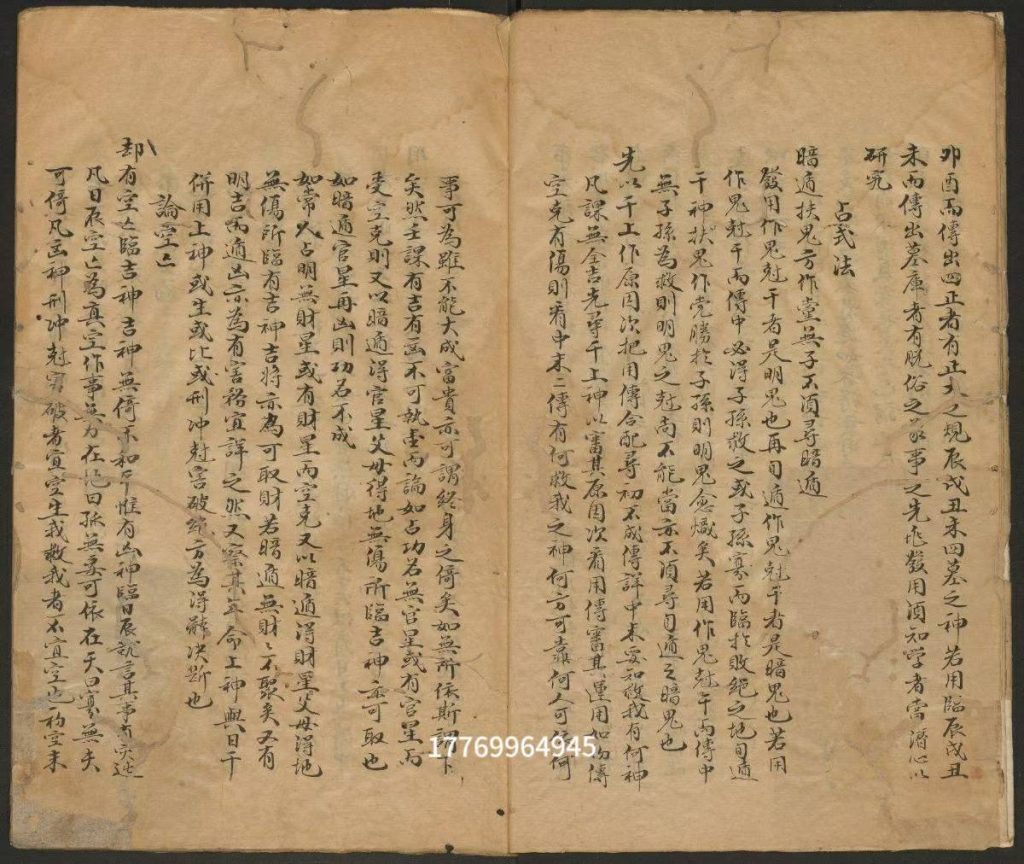 卯酉而傳出四正者有正大之規辰戌丑未四墓之神若用臨辰戌丑
未而傳出墓庫者有脫俗之 事之先 發用須知學者當潛心以
研究
占式法
暗遁扶鬼方作黨無子不須尋暗遁
發用作鬼尅干者是明鬼也再旬遁作鬼尅干者是暗鬼也若用
作鬼尅干而傳中必得子孫救之或子孫寡而臨於敗絕之地旬遁
干神扶鬼作党勝於子孫則明鬼愈熾矣若用作鬼尅干而傳中
無子孫為救則明鬼之尅尚不能當亦不須尋旬遁之暗鬼也
先以干上作原因次把用傳合配尋初不成傳詳中末要知救我有何神
凡課無全吉先舉干上神以審其原因次看用傳審其運用如初傳
空克有傷則看中末二傳有何救我之神何方可靠何人可 何
事可為雖不能大成富貴亦可謂終身之倚矣如無所依斯課下
矣然壬課有吉有凶不可執壹而論如占功名無官星或有官星而
受空克則又以暗遁得官星父母得地無傷所臨吉神亦可取也
如暗遁官星再凶則功名不成
如常人占明無財星或有財星而空克又以暗遁得財星父母得地
無傷所臨有吉神吉將亦為可取財若暗遁無財〻不聚矣又有
明吉而遁凶亦為有害務宜詳之然又察其年命上神與日干
併用上神或生或比或刑冲尅害破 方為得 決斷也
論空亡
却有空亡臨吉神吉神無倚不和平惟有凶神臨日辰說言其事有
凡日辰空亡為真空作事無力在地曰孤無妻可依在天曰寡無夫
可倚凡凶神刑冲尅害破者宜空生我救我者不宜空也初空末
17769964945